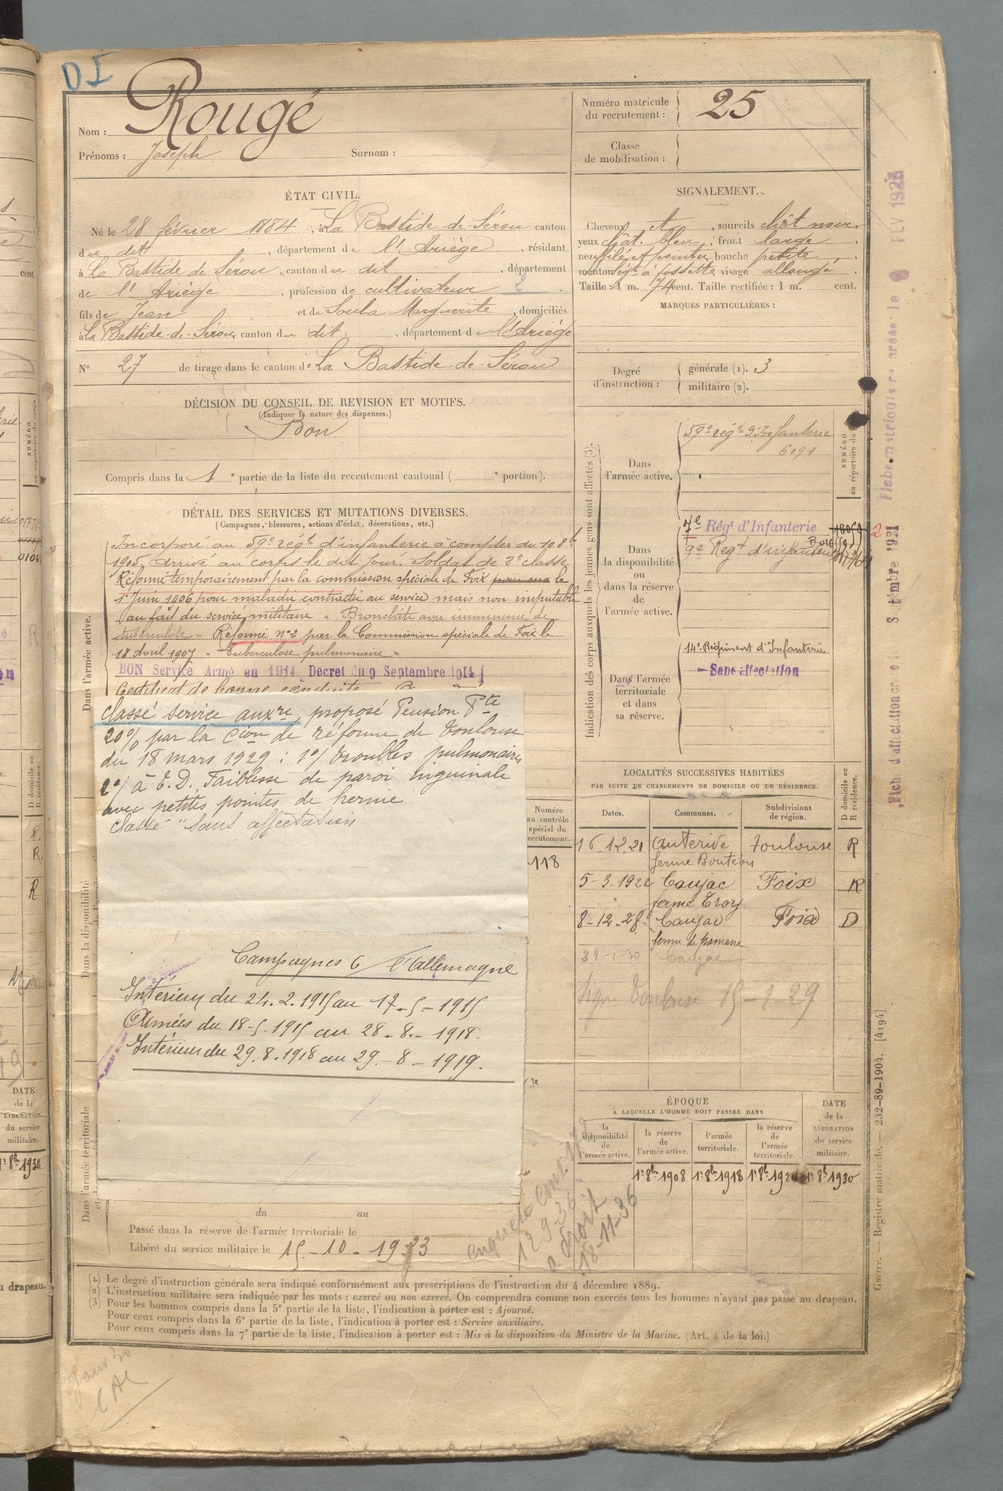 D I
Nom : Rougé
Prénoms : Joseph Surnom :
Numéro matricule du recrutement : 25
Classe de mobilisation :
ÉTAT CIVIL.
Né le 28 février 1884, à La Bastide-de-Sérou canton
du dit, département de l'Ariège, résidant
à La Bastide de Sérou, canton du dit, département
de l'Ariège, profession de cultivateur 2
fils de Jean et de Soula Marguerite, domiciliés
à La Bastide-de-Sérou, canton du dit, département de l'Ariège
N° 27 de tirage dans le canton de La Bastide-de-Sérou
SIGNALEMENT.
Cheveux et, sourcils chât. noir,
yeux chât. bleu, front large
nez, bouche petite,
menton à fossette, visage allongé
Taille : 1 m. 74 cent. Taille rectifiée : 1 m. cent.
MARQUES PARTICULIÈRES :
Degré d'instruction : générale (1). 3
militaire (2).
DÉCISION DU CONSEIL DE REVISION ET MOTIFS.
(Indiquer la nature des dispenses.)
Bon
Compris dans la 1e partie de la liste du recrutement cantonal ( e portion).
DÉTAIL DES SERVICES ET MUTATIONS DIVERSES.
(Campagnes, blessures, actions d'éclat, décorations, etc.)
Dans l'armée active.
Incorporé au 59e régt d'infanterie à compter du 10 8bre
1905. Arrivé au corps le dit jour. Soldat de 2e classe
Réformé temporairement par la commission spéciale de Foix le
1er Juin 1906 pour maladie contractée au service mais non imputable
au fait du service militaire "Bronchite avec imminence de
tuberculose" Réformé n°2 par la Commission spéciale de Foix le
18 avril 1907 "Tuberculose pulmonaire"
BON Service Armé en 1914 Décret du 9 Septembre 1914
Certificat de bonne conduite
classé service auxre proposé Pension Pte
20% par la Cion de réforme de Toulouse
du 18 mars 1929 : 1°/ troubles pulmonaires
2°/ à E.D. Faiblesse de paroi inguinale
avec petites pointes de hernie
classé "sans affectation"
Campagnes c/ l'Allemagne
Intérieur du 24.2.1915 au 17-5-1915
Armées du 18-5-1915 au 28.8.1918.
Intérieur du 29.8.1918 au 29-8-1919.
Dans la disponibilité
Dans l'armée territoriale
du au
Passé dans la réserve de l'armée territoriale le
Libéré du service militaire le 15-10-1933
Indication des corps auxquels les jeunes gens sont affectés (3).
Dans l'armée active. 59e régt d'Infanterie
6091
Dans la disponibilité ou dans la réserve de l'armée active. 7e Régt d'Infanterie
9e Regt d'infanterie
Dans l'armée territoriale et dans sa réserve. 14e Régiment d'Infanterie
- Sans affectation
NUMÉRO au répertoire du
LOCALITÉS SUCCESSIVES HABITÉES
PAR SUITE DE CHANGEMENTS DE DOMICILE OU DE RÉSIDENCE.
Dates. Communes. Subdivisions de région. D domicile ou R résidence.
16.12.21 Auterive Toulouse R
ferme
5-3-192 Caujac Foix R
ferme Troy
8-12-28 Caujac Foix D
Caujac
Toulouse 15-1-29
Numéro au contrôle spécial du recrutement.
118
ÉPOQUE
À LAQUELLE L'HOMME DOIT PASSER DANS
la disponibilité de l'armée active. la réserve de l'armée active. l'armée territoriale. la réserve de l'armée territoriale. DATE de la LIBÉRATION du service militaire.
1er 8bre 1908 1er 8bre 1918 1er 8bre 192 1er 8bre 1930
enquête
12 9-36
a droit
18-11-36
(1) Le degré d'instruction générale sera indiqué conformément aux prescriptions de l'instruction du 4 décembre 1889.
(2) L'instruction militaire sera indiquée par les mots : exercé ou non exercé. On comprendra comme non exercés tous les hommes n'ayant pas passé au drapeau.
(3) Pour les hommes compris dans la 5e partie de la liste, l'indication à porter est : Ajourné.
Pour ceux compris dans la 6e partie de la liste, l'indication à porter est : Service auxiliaire.
Pour ceux compris dans la 7e partie de la liste, l'indication à porter est : Mis à la disposition du Ministre de la Marine. (Art. 4 de la loi.)
Guerre. — Registre matricule. — 232-89-1904. [4194]
Fiche d'affectation créée le Septembre 1921
Fiche matriculaire créée le 8 FEV 1923
cent.
DATE de la LIBÉRATION du service militaire.
1er 8bre 1930
u drapeau.